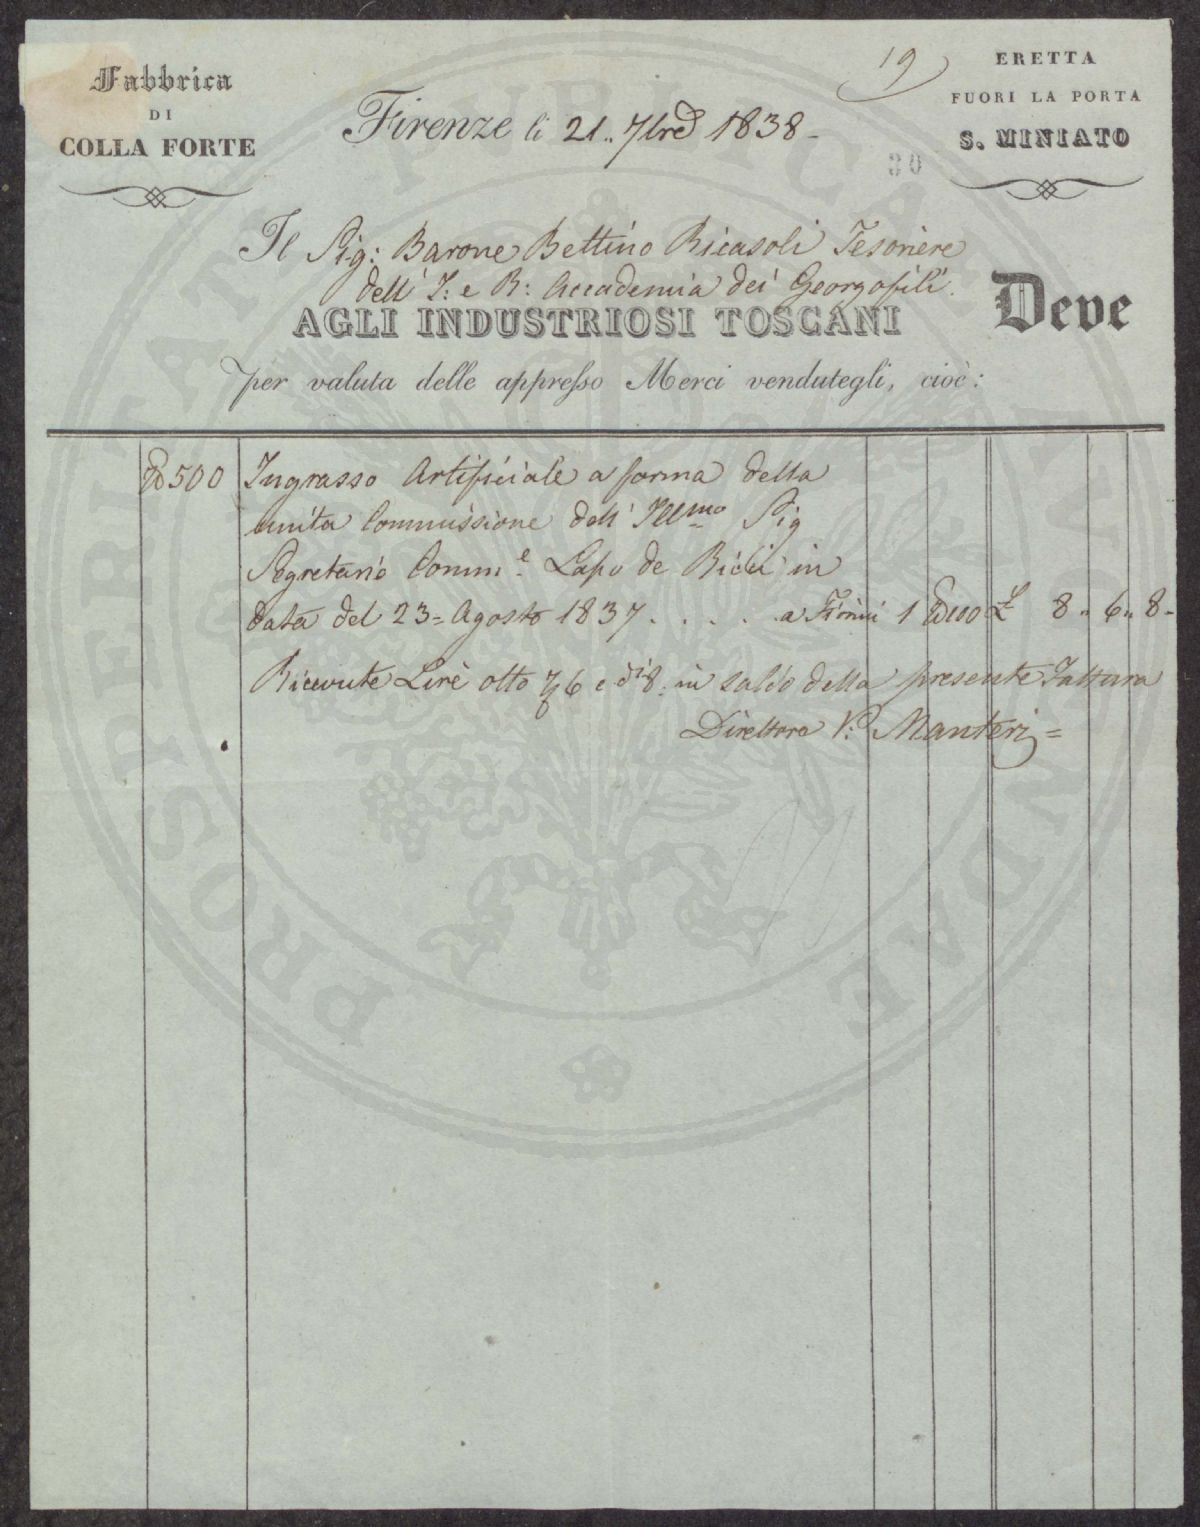 Fabbrica
DI
COLLA FORTE
Firenze li 21.. 7bre 1838-
19
ERETTA
FUORI LA PORTA
S. MINIATO
30
Il Sig: Barone Bettino Ricasoli Tesoriere
dell' I: e R: Accademia dei Georgofili.
AGLI INDUSTRIOSI TOSCANI Deve
per valuta delle appresso Merci vendutegli, cioè:
500 Ingrasso Artificiale a forma della
unita Commissione dell' Illmo Sig
Segretario Comme. Lapo de Ricci in
data del 23= Agosto 1837 . . . . . a 1 100 £ 8 " 6 " 8-
Ricevute Lire otto 6 e di 8: in saldo della presente Fattura
Direttore V: Manteri=
PROSPERITATI PUBLICAE AUGENDAE